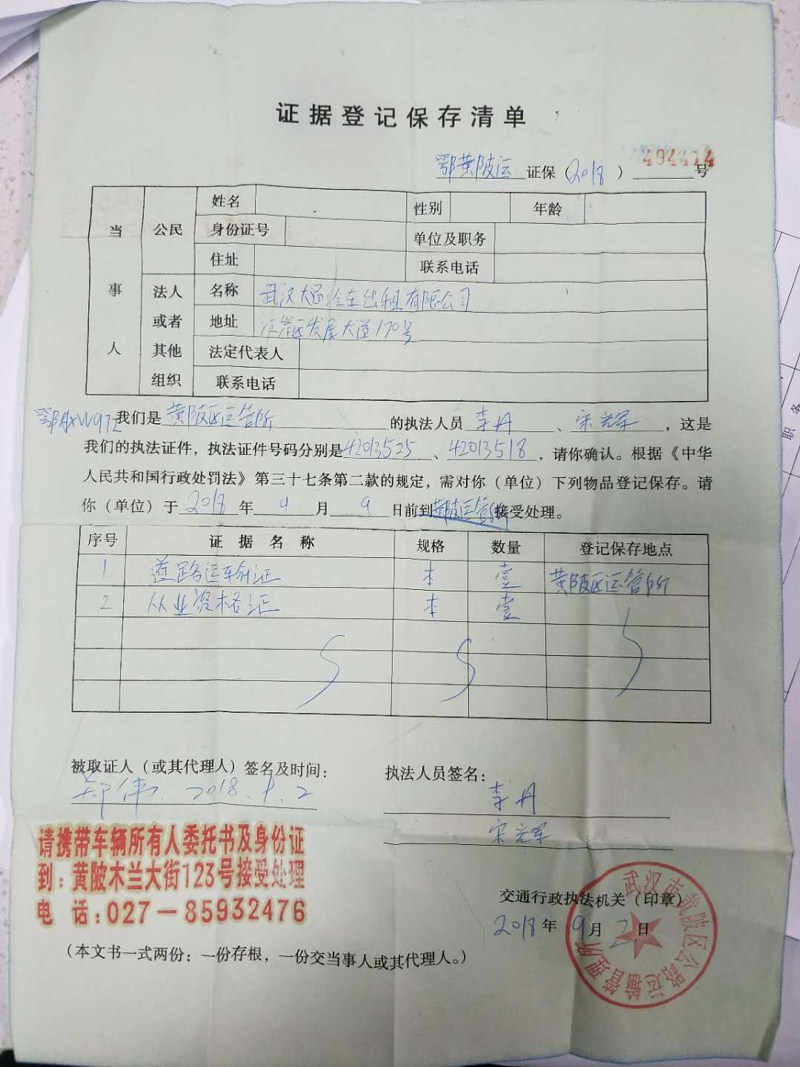 证据登记保存清单
鄂黄陂运 证保（2018）494414号
当事人
公民
姓名 性别 年龄
身份证号 单位及职务
住址 联系电话
法人或者其他组织
名称 武汉大通冷车出租有限公司
地址 江岸区发展大道170号
法定代表人
联系电话
我们是 黄陂区运管所 的执法人员 李丹 、 宋元军 ，这是
我们的执法证件，执法证件号码分别是42013525、42013518，请你确认。根据《中华
人民共和国行政处罚法》第三十七条第二款的规定，需对你（单位）下列物品登记保存。请
你（单位）于 2018 年 9 月 9 日前到黄陂运管所接受处理。
序号 证据名称 规格 数量 登记保存地点
1 道路运输证 本 壹 黄陂区运管所
2 从业资格证 本 壹
被取证人（或其代理人）签名及时间： 执法人员签名：
2018.9.2 李丹
宋元军
请携带车辆所有人委托书及身份证
到：黄陂木兰大街123号接受处理
电 话：027－85932476
交通行政执法机关（印章）
2018 年 9 月 2 日
武汉市黄陂区公路运输管理所
（本文书一式两份：一份存根，一份交当事人或其代理人。）
职务